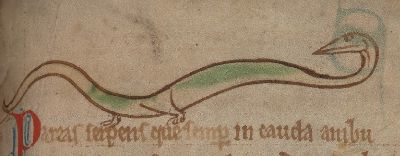 Pareas serpens que semp in cauda ambu